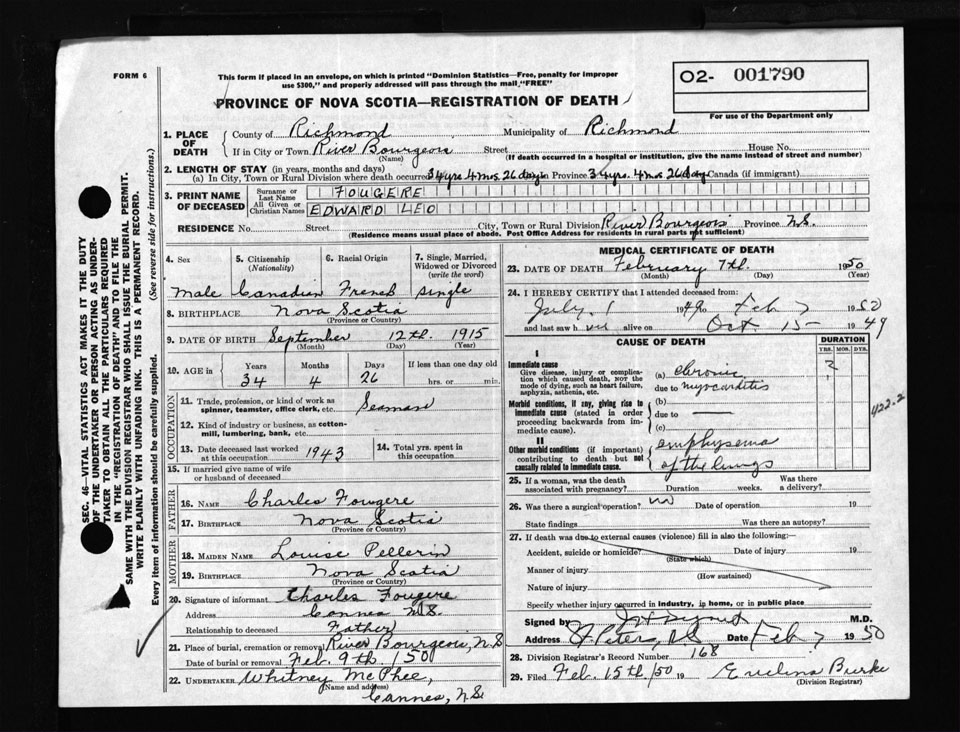 FORM 6
This form if placed in an envelope, on which is printed "Dominion Statistics—Free, penalty for improper
use $300," and properly addressed will pass through the mail "FREE"
O2- 001790
For use of the Department only
PROVINCE OF NOVA SCOTIA—REGISTRATION OF DEATH
1. PLACE OF DEATH
County of Richmond Municipality of Richmond
If in City or Town River Bourgeois Street House No.
(Name) (If death occurred in a hospital or institution, give the name instead of street and number)
2. LENGTH OF STAY (in years, months and days)
(a) In City, Town or Rural Division where death occurred 34yrs 4mos. 26days In Province 34yrs. 4mos 26days Canada (if immigrant)
3. PRINT NAME OF DECEASED
Surname or Last Name FOUGERE
All Given or Christian Names EDWARD LEO
RESIDENCE No. Street City, Town or Rural Division River Bourgeois Province N.S.
(Residence means usual place of abode. Post Office Address for residents in rural parts not sufficient)
SEC. 46—VITAL STATISTICS ACT MAKES IT THE DUTY
OF THE UNDERTAKER OR PERSON ACTING AS UNDER-
TAKER TO OBTAIN ALL THE PARTICULARS REQUIRED
IN THE "REGISTRATION OF DEATH" AND TO FILE THE
SAME WITH THE DIVISION REGISTRAR WHO SHALL ISSUE THE BURIAL PERMIT.
WRITE PLAINLY WITH UNFADING INK. THIS IS A PERMANENT RECORD.
Every item of information should be carefully supplied. (See reverse side for instructions.)
4. Sex 5. Citizenship (Nationality) 6. Racial Origin 7. Single, Married, Widowed or Divorced (write the word)
Male Canadian French single
8. BIRTHPLACE Nova Scotia
(Province or Country)
9. DATE OF BIRTH September 12th. 1915
(Month) (Day) (Year)
10. AGE in Years Months Days If less than one day old
34 4 26 hrs. or min.
OCCUPATION
11. Trade, profession, or kind of work as
spinner, teamster, office clerk, etc. Seaman
12. Kind of industry or business, as cotton-
mill, lumbering, bank, etc.
13. Date deceased last worked at this occupation 1943 14. Total yrs. spent in this occupation
15. If married give name of wife
or husband of deceased
FATHER
16. NAME Charles Fougere
17. BIRTHPLACE Nova Scotia
(Province or Country)
MOTHER
18. MAIDEN NAME Louise Pellerin
19. BIRTHPLACE Nova Scotia
(Province or Country)
20. Signature of informant Charles Fougere
Address Cannes N.S.
Relationship to deceased Father
21. Place of burial, cremation or removal River Bourgeois, N.S
Date of burial or removal Feb. 9th. 150
22. UNDERTAKER Whitney McPhee,
(Name and address)
Cannes, N.S.
MEDICAL CERTIFICATE OF DEATH
23. DATE OF DEATH February 7th. 1950
(Month) (Day) (Year)
24. I HEREBY CERTIFY that I attended deceased from:
July. 1 1949 Feb 7 1950
and last saw h alive on Oct 15- 1949
CAUSE OF DEATH
DURATION
YRS. MOS. DYS.
I
Immediate cause
Give disease, injury or complica-
tion which caused death, nor the
mode of dying, such as heart failure,
asphyxia, asthenia, etc.
(a) Chronic 2
due to myocarditis
Morbid conditions, if any, giving rise to
immediate cause (stated in order
proceeding backwards from im-
mediate cause).
(b)
due to
(c)
422.2
II
Other morbid conditions (if important)
contributing to death but not
causally related to immediate cause.
emphysema
of the lungs
25. If a woman, was the death
associated with pregnancy? Duration weeks. Was there a delivery?
26. Was there a surgical operation? no Date of operation 19
State findings Was there an autopsy?
27. If death was due to external causes (violence) fill in also the following:—
Accident, suicide or homicide? Date of injury 19
(State which)
Manner of injury
(How sustained)
Nature of injury
Specify whether injury occurred in industry, in home, or in public place
Signed by M.D.
Address St Peters, N.S Date Feb 7 1950
28. Division Registrar's Record Number 168
29. Filed Feb. 15th/50 19 Evelina Burke
(Division Registrar)